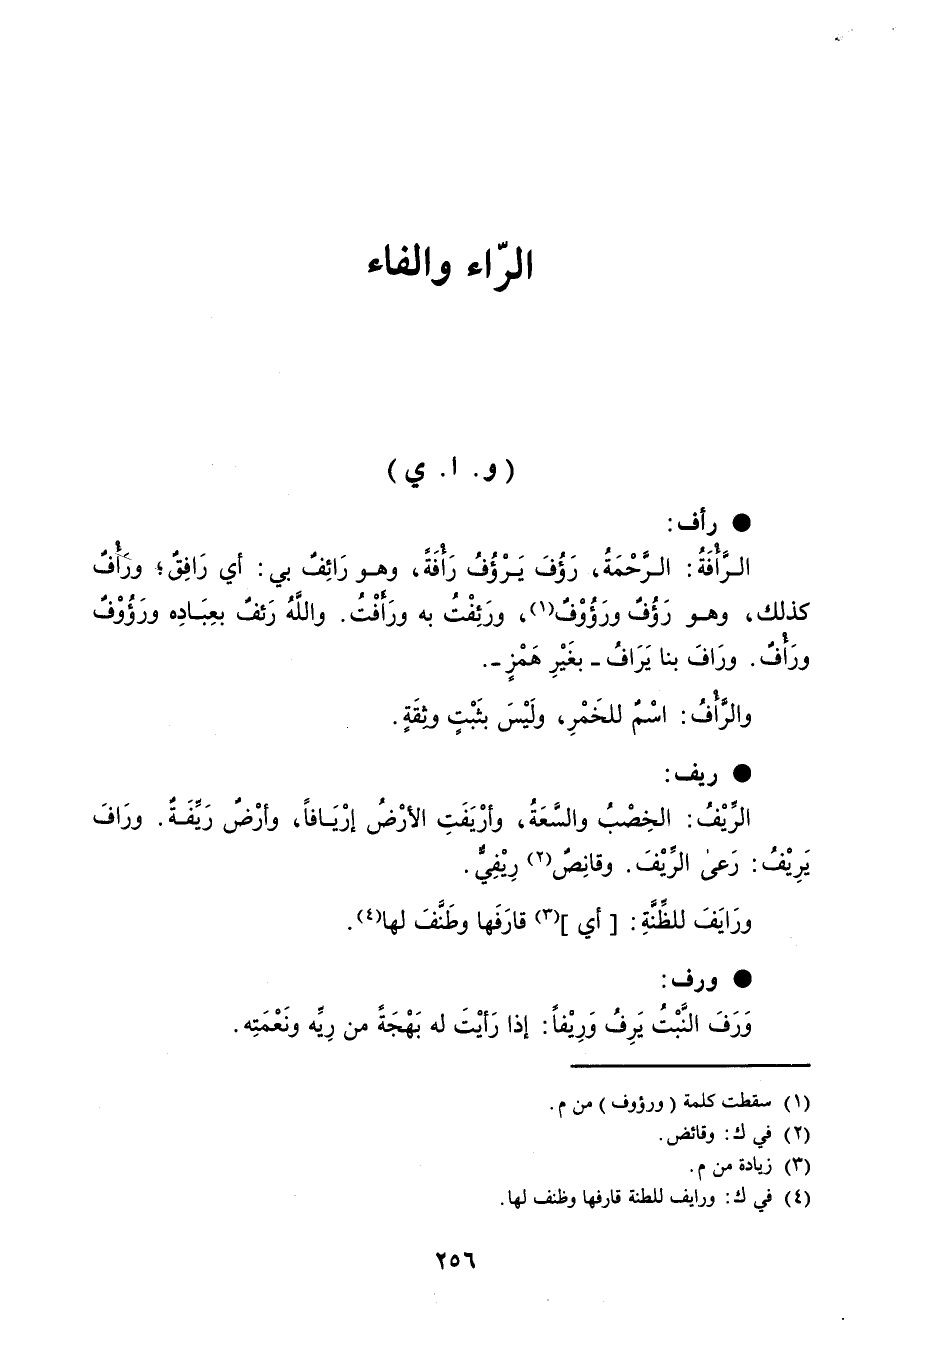 الرّاء والفاء
(و. ا. ي)
● رأف:
الـرَّأْفَةُ: الـرَّحْمَةُ، رَؤُفَ يَـرْؤُفُ رَأْفَةً، وهـو رَائِفٌ بي: أي رَافِقٌ؛ ورَأْفٌ
كذلك، وهـو رَؤُفٌ ورَؤُوْفٌ(١)، ورَئِفْتُ به ورَأَفْتُ. واللَّهُ رَئفٌ بعِبَادِه ورَؤُوْفٌ
ورَأْفٌ. ورَافَ بنا يَرَافُ ـ بغَيْرِ هَمْزٍ ـ.
والرَّأْفُ: اسْمٌ للخَمْرِ، ولَيْسَ بثَبْتٍ وثِقَةٍ.
● ريف:
الرِّيْفُ: الخِصْبُ والسَّعَةُ، وأرْيَفَتِ الأرْضُ إرْيَـافاً، وأرْضٌ رَيِّفَـةٌ. ورَافَ
يَرِيْفُ: رَعىٰ الرِّيْفَ. وقانِصٌ(٢) رِيْفِيٌّ.
ورَايَفَ للظِّنَّةِ: [ أي ](٣) قارَفَها وطَنَّفَ لها(٤).
● ورف:
وَرَفَ النَّبْتُ يَرِفُ وَرِيْفاً: إذا رَأيْتَ له بَهْجَةً من رِيِّه ونَعْمَتِه.
(١) سقطت كلمة (ورؤوف) من م.
(٢) في ك: وقائض.
(٣) زيادة من م.
(٤) في ك: ورايف للطنة قارفها وظنف لها.
٢٥٦